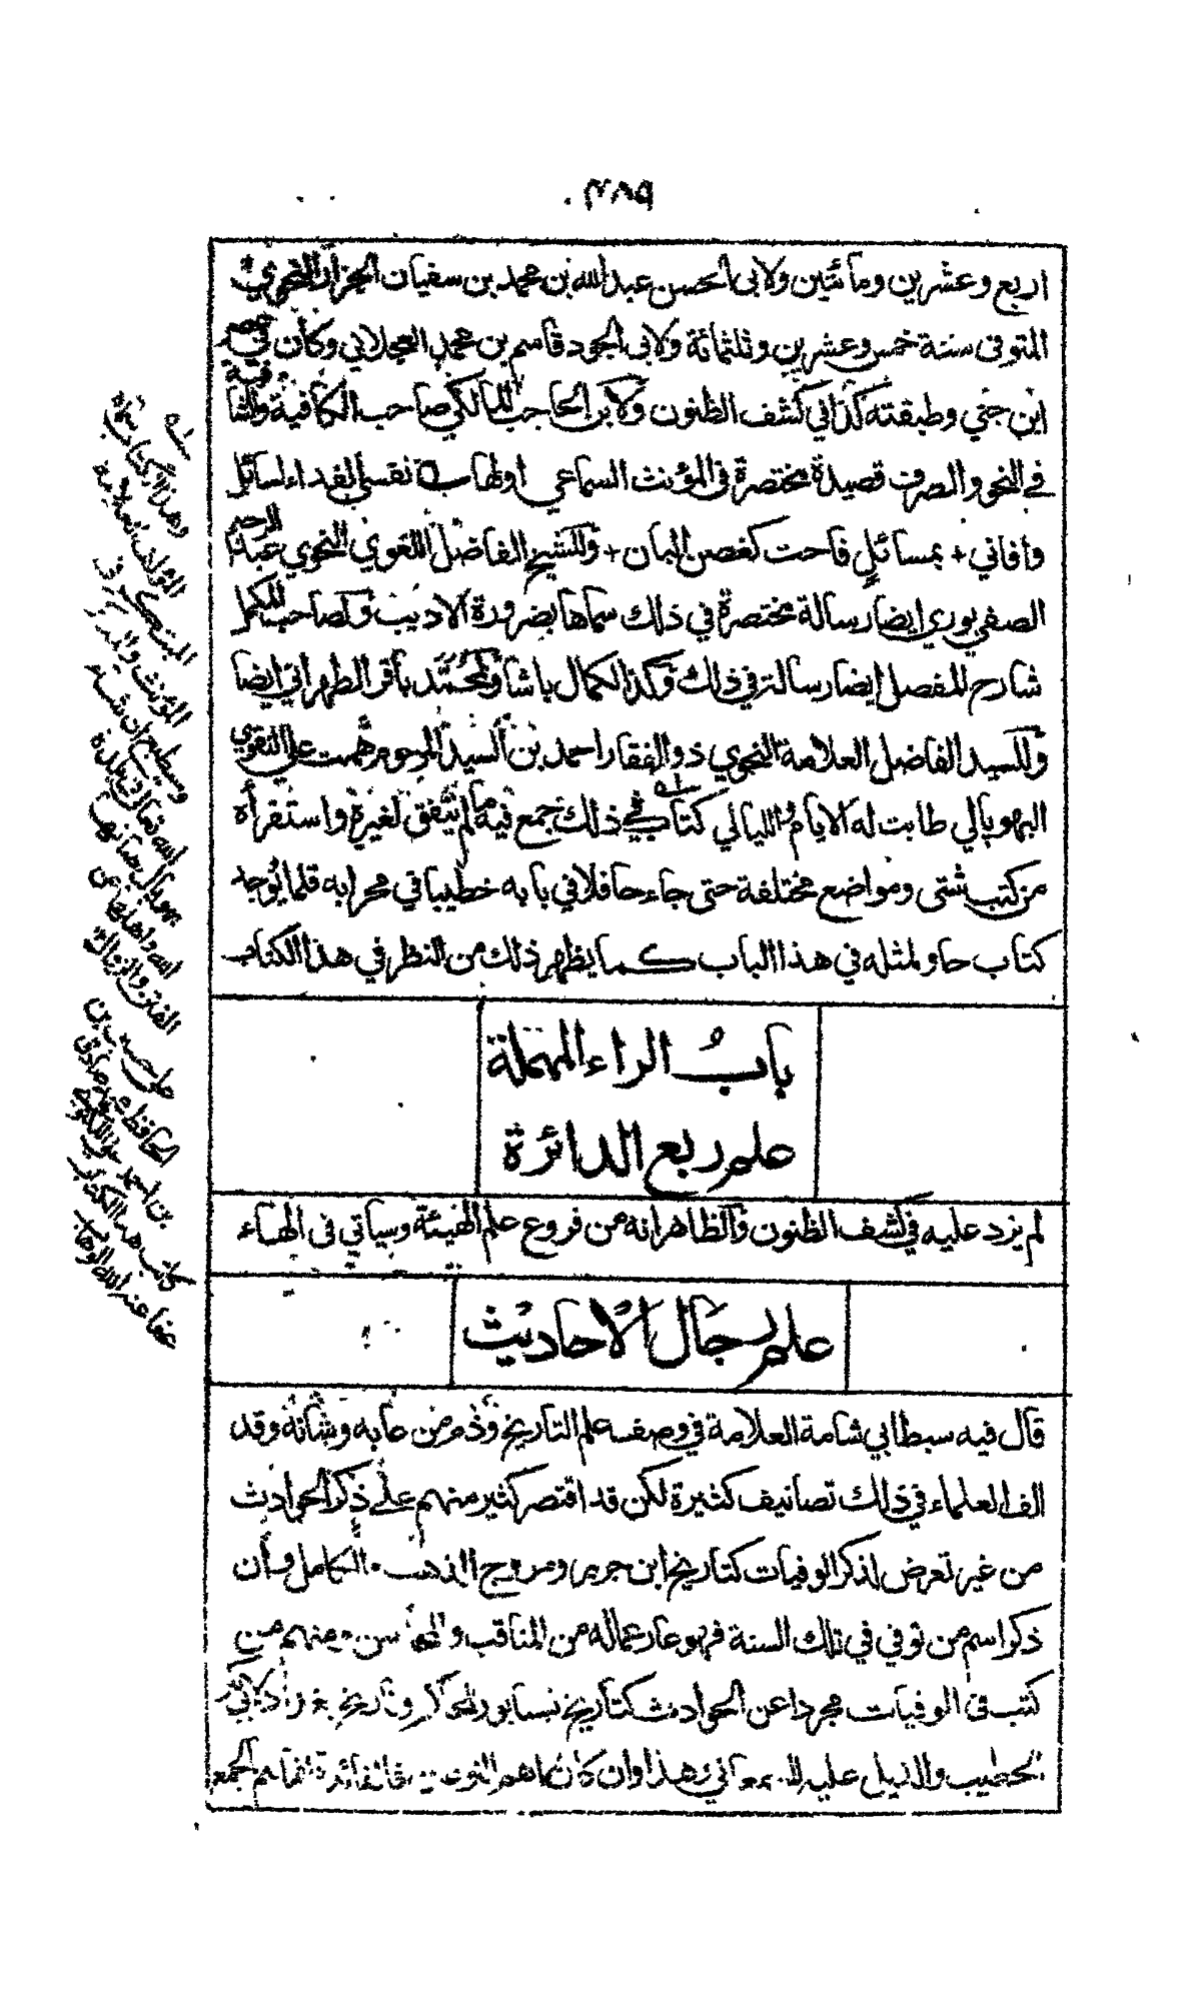 ٤٨٩
اربع وعشرين ومائتين ولابى الحسن عبدالله بن محمد بن سفيان الخزاز النحوي
المتوفى سنة خمس وعشرين وثلثمائة ولابى الجود قاسم بن محمد العجلاني وكأن في عصر
ابن جني وطبقته كذا في كشف الظنون ولابن الحاجب المالكي صاحب الكافية والشافية
في النحو والصرف قصيدة مختصرة فى المؤنث السماعي اولها نفسي الفداء لسائل
وافاني + بمسائل فاحت كغصن البان + وللشيخ الفاضل اللغوي النحوي عبد الرحيم
الصفي بوري ايضا رسالة مختصرة في ذلك سماها بضرورة الاديب ولصاحب المكمل
شارح المفصل ايضا رسالة في ذلك وكذا لكمال باشا ولمحمد باقر الطهراني ايضا
وللسيد الفاضل العلامة النحوي ذو الفقار احمد بن السيد المرحوم همت علي النقوي
البهوبالي طابت له الايام والليالي كتاب في ذلك جمع فيه ما لم يتفق لغيرة واستقرأه
من كتب شتى ومواضع مختلفة حتى جاء حافلا في بابه خطيبا في محرابه قلما يوجد
كتاب حاو لمثله في هذا الباب كما يظهر ذلك من النظر في هذا الكتاب
باب الراء المهملة
علم ربع الدائرة
لم يزد عليه في كشف الظنون والظاهر انه من فروع علم الهيئة وسياتي فى الهاء
علم رجال الاحاديث
قال فيه سبط ابي شامة العلامة في وصف علم التاريخ وذم من عابه وشانه وقد
الف العلماء في ذلك تصانيف كثيرة لكن قد اقتصر كثير منهم على ذكر الحوادث
من غير تعرض لذكر الوفيات كتاريخ ابن جرير ومروج الذهب والكامل وان
ذكر اسم من توفي في تلك السنة فهو عار عماله من المناقب والمحاسن ومنهم من
كتب فى الوفيات مجردا عن الحوادث كتاريخ نيسابور للحاكم وتاريخ بغداد لابي بكر
الخطيب والذيل عليه للسمعاني وهذا وان كان اهم النوعين فالفائدة انما هي الجمع
منه
وهذا الكتاب سماه
المؤلف العلامة
المبتكر في
المؤنث والمذكر
وسيطبع ان شاء
الله تعالى في بلدة
بهوبال صانها
الله واهلها عن
الفتن والزوال
علي حسين بن
الحافظ
بن احمد
كاتب هذا الكتاب
عفا عنه الله الوهاب